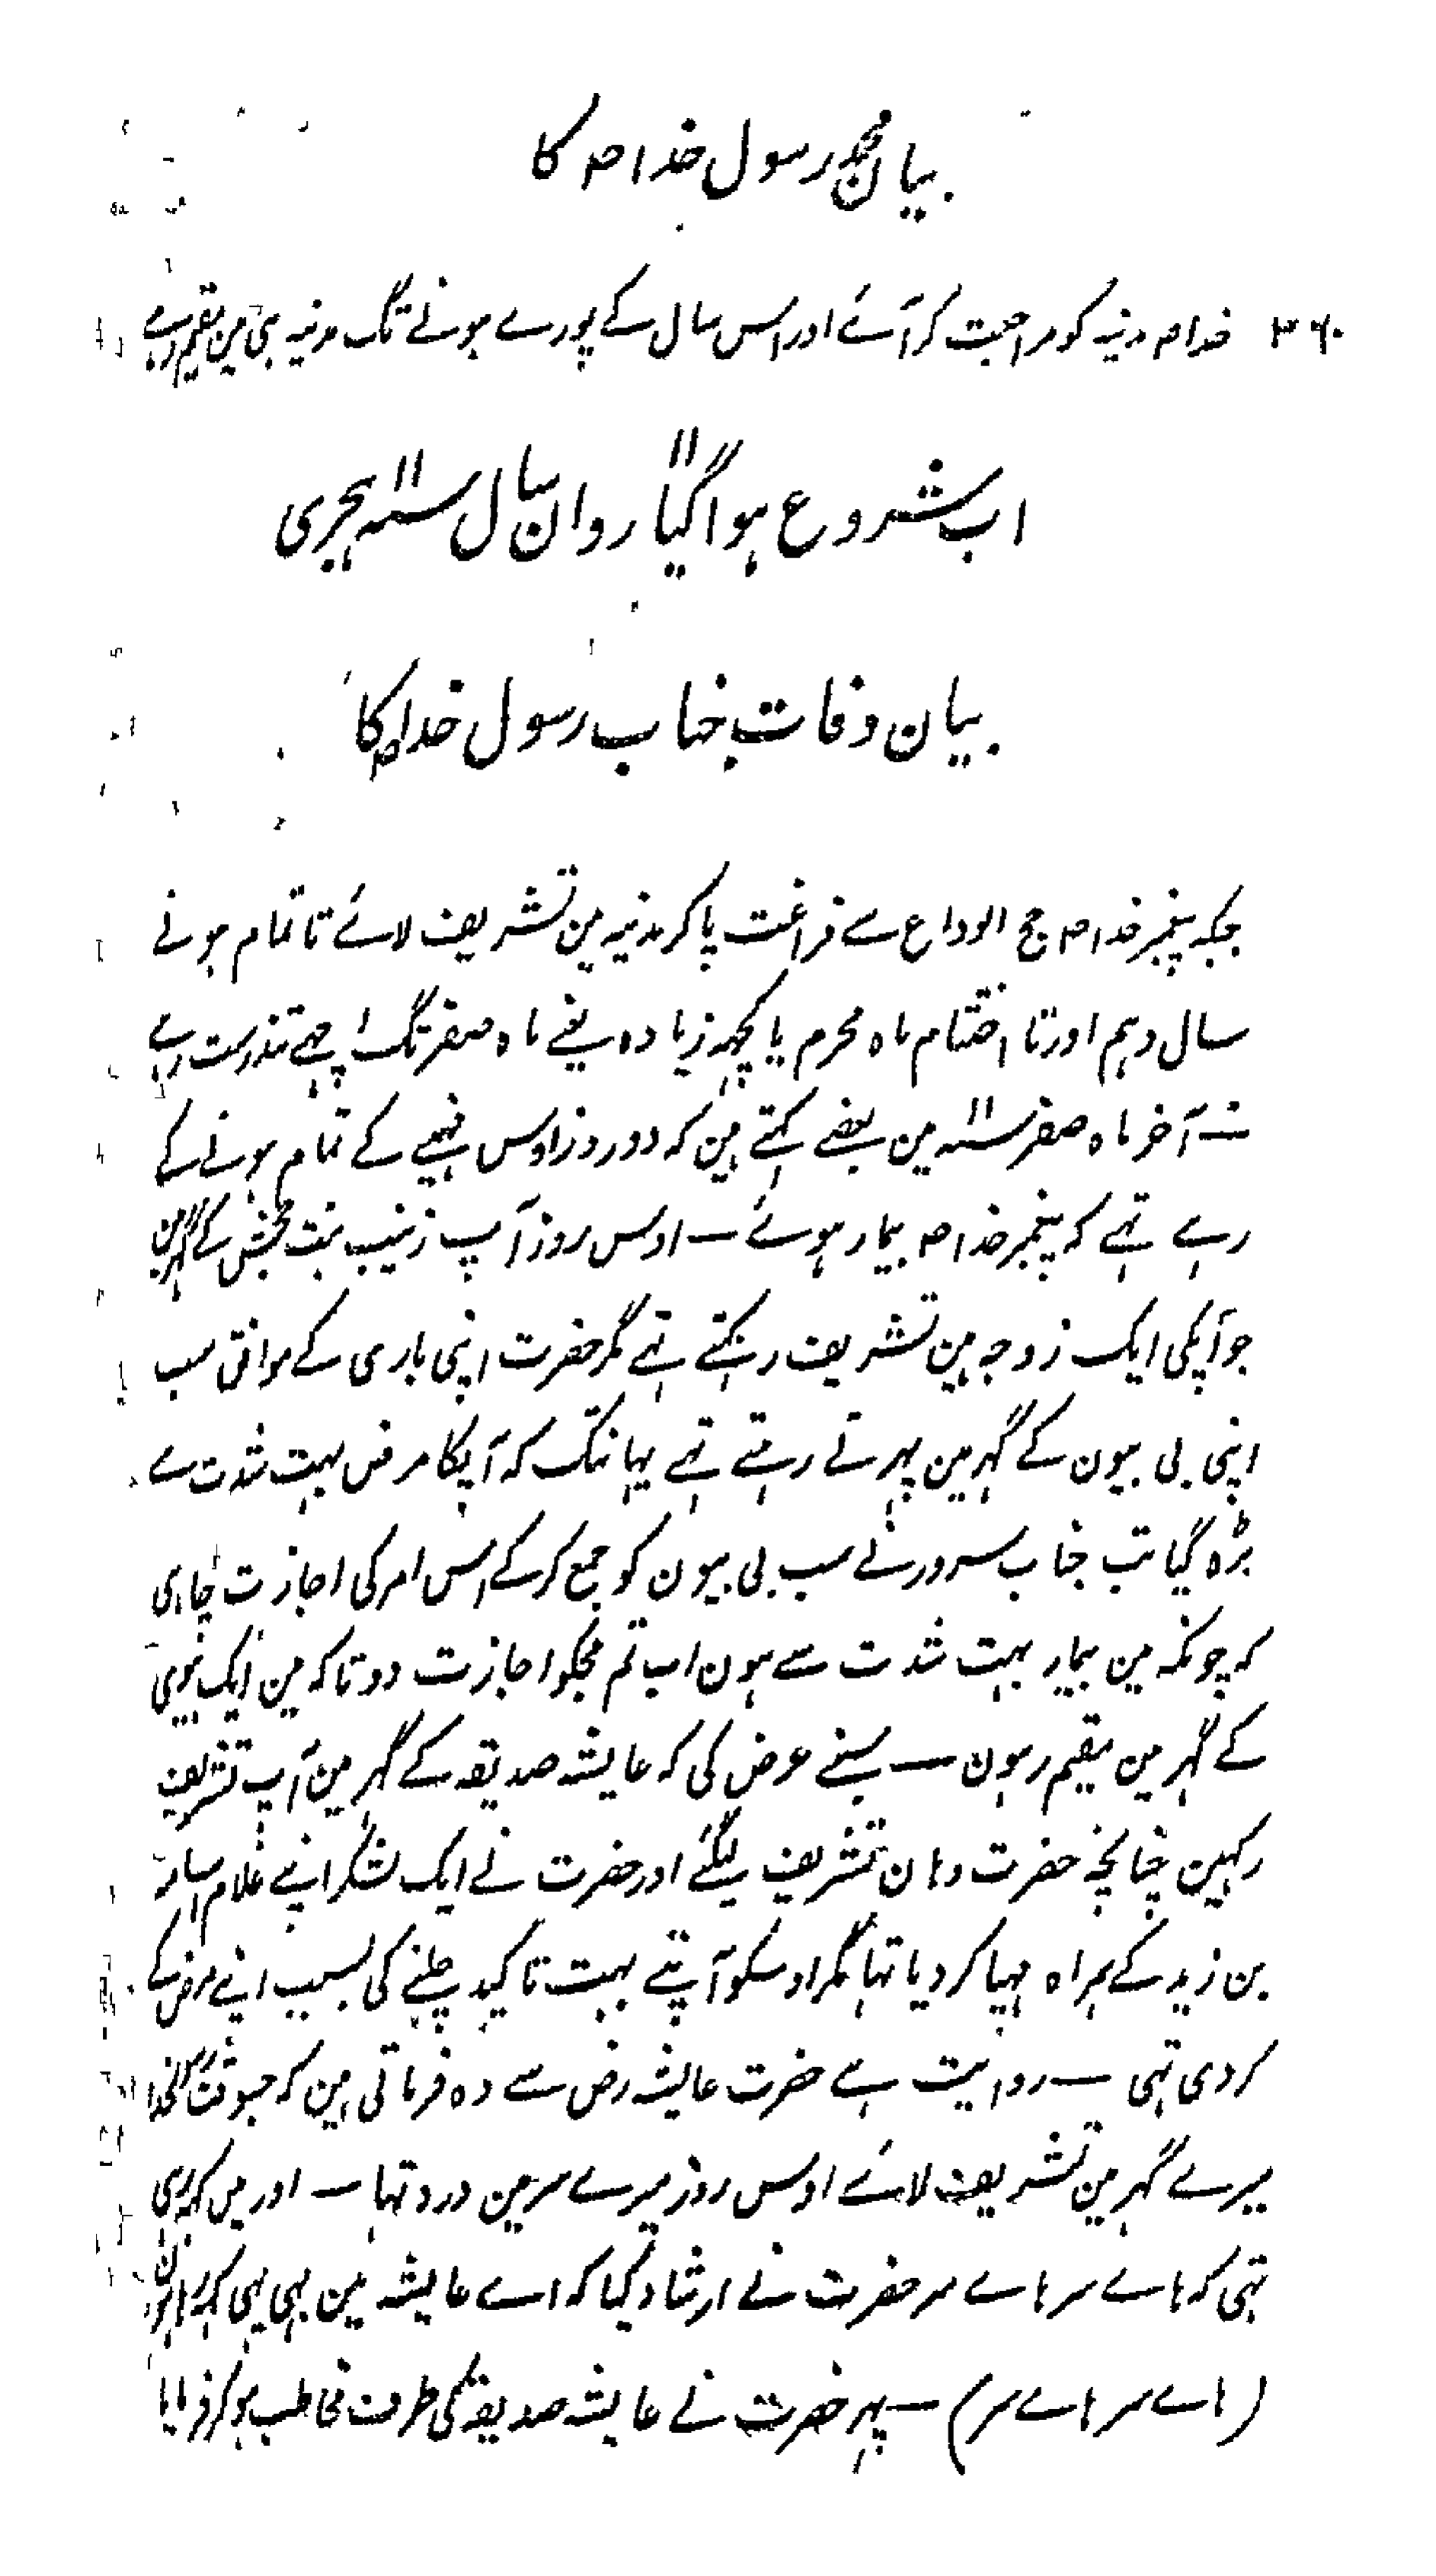 بیان محمد رسول خدا ص کا
۳۶۰ خدا ص مدینہ کو مراجعت کر آئے اور اس سال کے پورے ہونے تک مدینہ ہی مین مقیم رہے
اب شروع ہوا گیارہوان سال سنہ ۱۱ ہجری
بیان وفات جناب رسول خدا ص کا
جبکہ پیغمبر خدا ص حج الوداع سے فراغت پا کر مدینہ مین تشریف لائے تا تمام ہونے
سال دہم اور تا اختتام ماہ محرم یا کچہہ زیادہ یعنے ماہ صفر تک اچھے تندرست رہے
آخر ماہ صفر سنہ ۱۱ مین بعضے کہتے ہین کہ دو روز اوس مہینے کے تمام ہونے کے
رہے تہے کہ پیغمبر خدا ص بیمار ہوئے — اوس روز آپ زینب بنت جحش کے گہر مین
جو آپکی ایک زوجہ ہین تشریف رکہتے تہے مگر حضرت اپنی باری کے موافق سب
اپنی بی بیون کے گہر مین پہرتے رہتے تہے یہانتک کہ آپکا مرض بہت شدت سے
بڑہ گیا تب جناب سرور نے سب بی بیون کو جمع کر کے اس امر کی اجازت چاہی
کہ چونکہ مین بیمار بہت شدت سے ہون اب تم مجکو اجازت دو تاکہ مین ایک بیوی
کے گہر مین مقیم رہون — سبنے عرض کی کہ عایشہ صدیقہ کے گہر مین آپ تشریف
رکہین چنانچہ حضرت وہان تشریف لیگئے اور حضرت نے ایک لشکر اپنے غلام اسامہ
بن زید کے ہمراہ مہیا کر دیا تہا مگر اوسکو آپنے بہت تاکید چلنے کی بسبب اپنے مرض کے
کر دی تہی — روایت ہے حضرت عایشہ رض سے وہ فرماتی ہین کہ جسوقت خدا
میرے گہر مین تشریف لائے اوس روز میرے سر مین درد تہا — اور مین کہہ رہی
تہی کہ ہاے سر ہاے سر حضرت نے ارشاد کیا کہ اے عایشہ مین بہی یہی کہہ رہا ہون
(ہاے سر ہاے سر) — پہر حضرت نے عایشہ صدیقہ کی طرف مخاطب ہو کر فرمایا